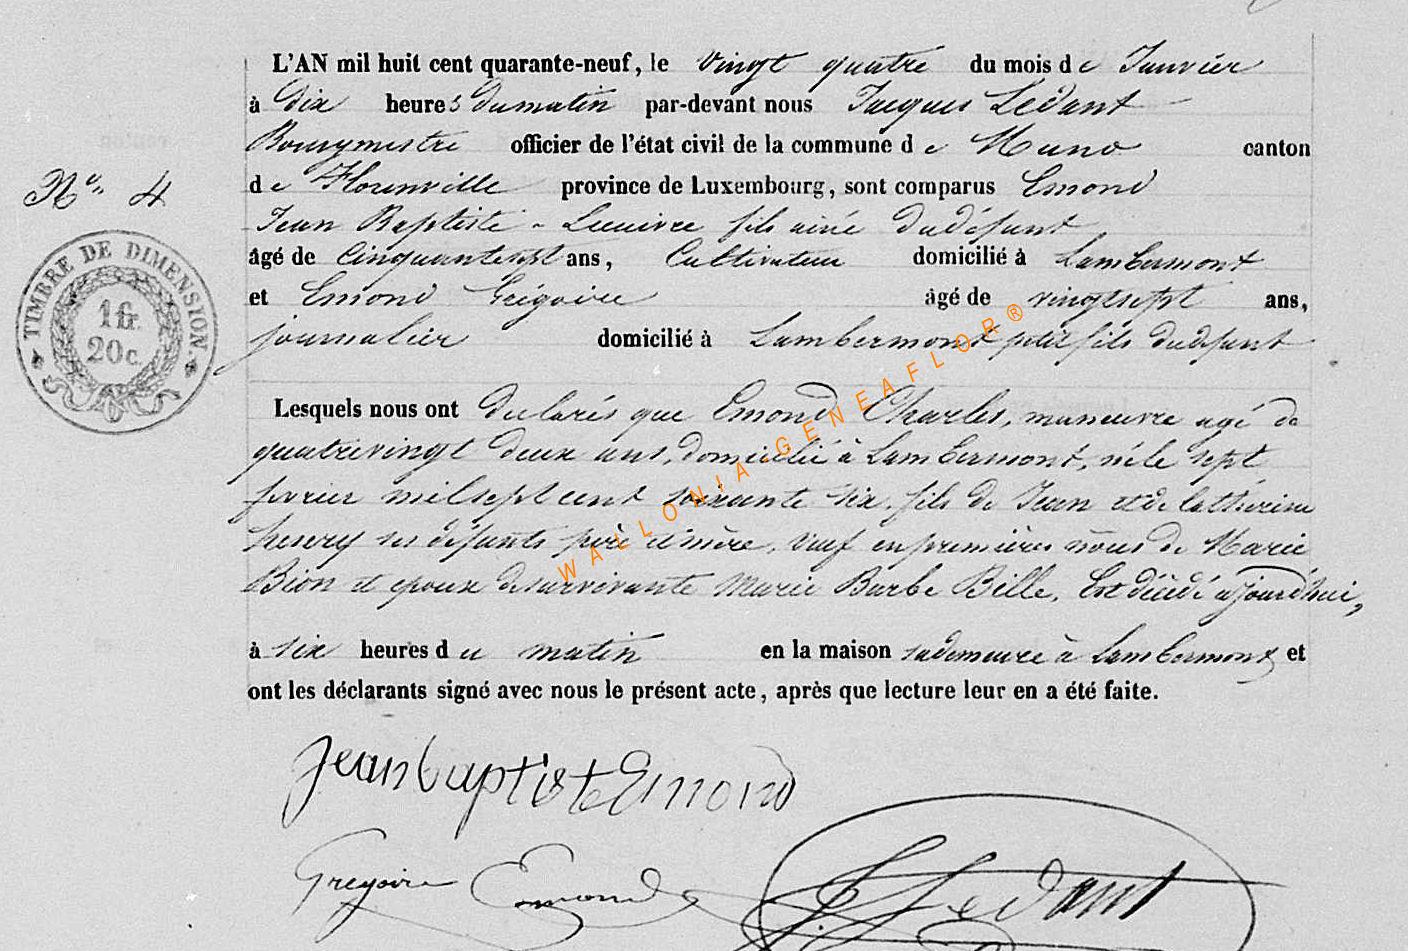 L'AN mil huit cent quarante-neuf, le Vingt quatre du mois de Janvier
à Dix heures du matin par-devant nous Jacques Ledant
Bourgmestre officier de l'état civil de la commune de Muno canton
de Florenville province de Luxembourg, sont comparus Emond
Jean Baptiste fils ainé du défunt
âgé de Cinquante sept ans, Cultivateur domicilié à Lambermont
et Emond Grégoire âgé de vingt sept ans,
Nº 4
journalier domicilié à Lambermont petit fils du défunt
TIMBRE DE DIMENSION.
1 fr.
20 c.
Lesquels nous ont declarés que Emond Charles, manœuvre agé de
quatrevingt deux ans, domicilié à Lambermont, né le sept
fevrier mil sept cent soixante six, fils de Jean et de Catherine
ses défunts père et mère, veuf en premières nôces de Marie
Bion et epoux de survivante Marie Barbe Bille, Est décédé aujourd'hui,
à six heures du matin en la maison sa demeure à Lambermont et
ont les déclarants signé avec nous le présent acte, après que lecture leur en a été faite.
WALLONIA-GENEAFLOR®
Jean baptiste Emond
Gregoire Emond
J Ledant